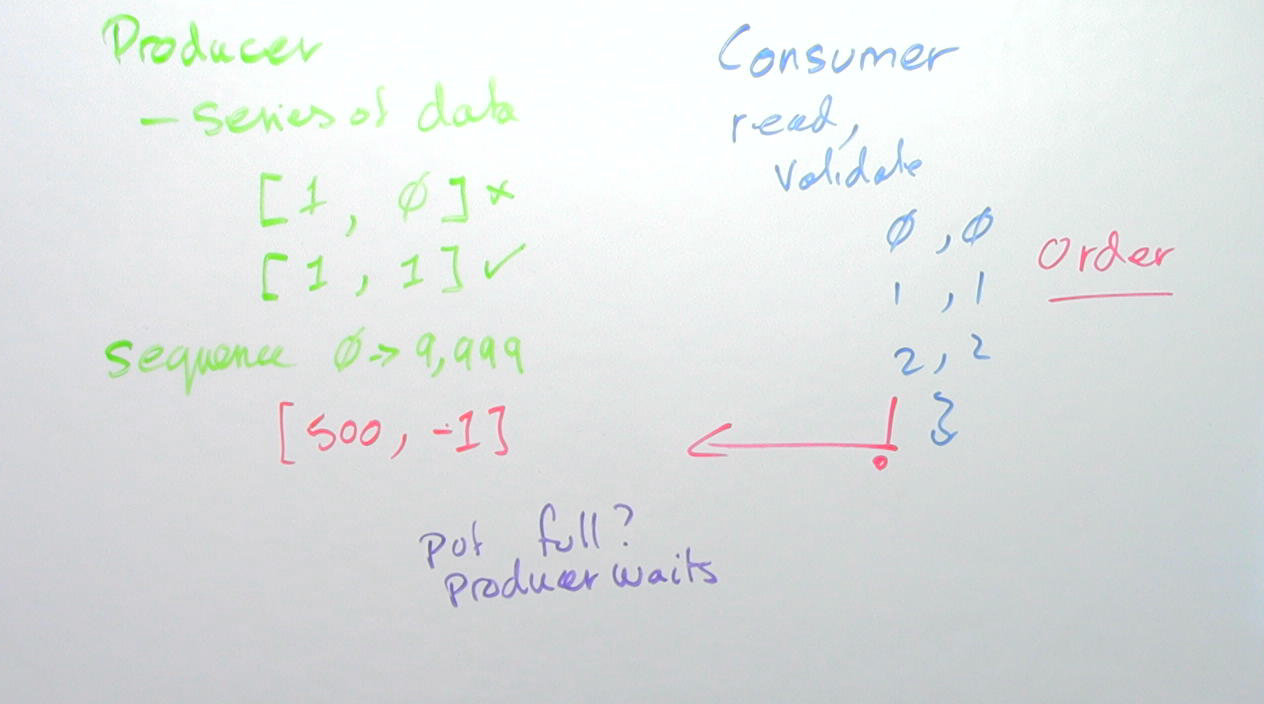 Producer
- series of data
[1, 0] x
[1, 1] ✓
sequence 0 -> 9,999
[500, -1]
Consumer
read,
validate
0, 0
1, 1
2, 2
3
Order
pot full?
producer waits